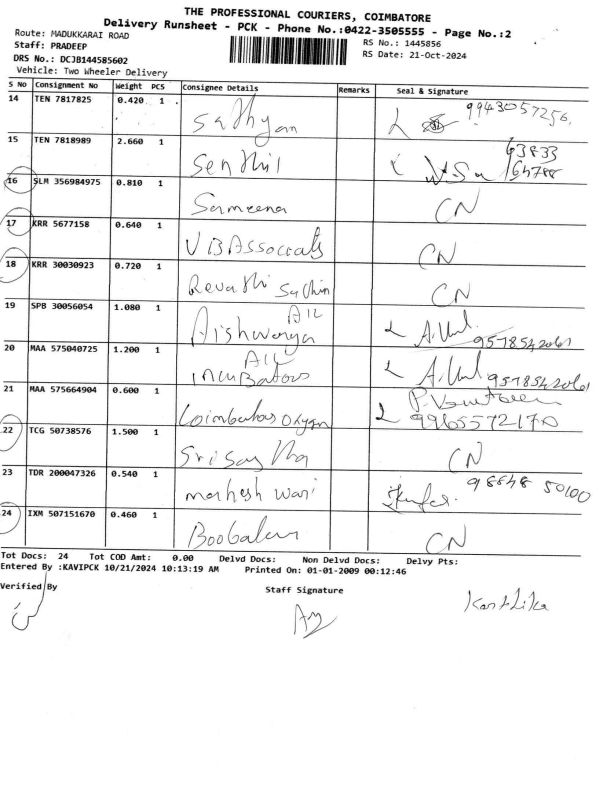 THE PROFESSIONAL COURIERS, COIMBATORE
Delivery Runsheet - PCK - Phone No.:0422-3505555 - Page No.:2
Route: MADUKKARAI ROAD
Staff: PRADEEP
RS No.: 1445856
DRS No.: DCJB144585602
RS Date: 21-Oct-2024
Vehicle: Two Wheeler Delivery
S No Consignment No Weight PCS Consignee Details Remarks Seal & Signature
14 TEN 7817825 0.420 1 Sathyan 9943057256
15 TEN 7818989 2.660 1 Senthil 63833 64788
16 SLM 356984975 0.810 1 Sameena CN
17 KRR 5677158 0.640 1 VB Associats CN
18 KRR 30030923 0.720 1 Revathi Sachin CN
19 SPB 30056054 1.080 1 Aishwarya AIC 9578542061
20 MAA 575040725 1.200 1 AIC Incubators 9578542061
21 MAA 575664904 0.600 1 Coimbatore Oxygen 9965572170
22 TCG 50738576 1.500 1 Sri CN
23 TDR 200047326 0.540 1 maheshwari 98848 50100
24 IXM 507151670 0.460 1 Boobalan CN
Tot Docs: 24 Tot COD Amt: 0.00 Delvd Docs: Non Delvd Docs: Delvy Pts:
Entered By :KAVIPCK 10/21/2024 10:13:19 AM Printed On: 01-01-2009 00:12:46
Verified By
Staff Signature
Karthika